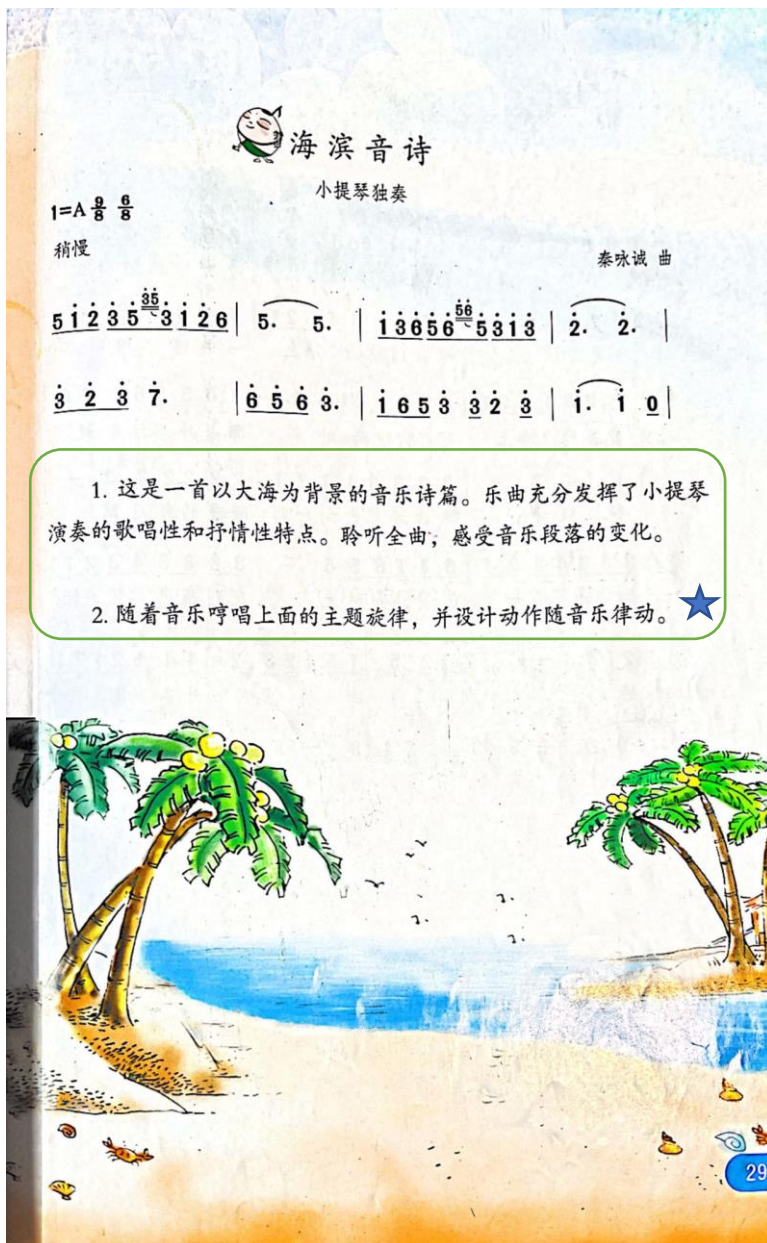 海滨音诗
小提琴独奏
1=A 9/8 6/8
稍慢
秦咏诚 曲
5 i̇ 2̇ 3̇ 5̇ 3̇5̇ 3̇ i̇ 2̇ 6 | 5. 5. | i̇ 3̇ 6̇ 5̇ 6̇ 5̇6̇ 5̇ 3̇ i̇ 3̇ | 2̇. 2̇. |
3̇ 2̇ 3̇ 7̇. | 6̇ 5̇ 6̇ 3̇. | i̇ 6 5 3̇ 3̇ 2̇ 3̇ | i̇. i̇ 0 |
1. 这是一首以大海为背景的音乐诗篇。乐曲充分发挥了小提琴
演奏的歌唱性和抒情性特点。聆听全曲，感受音乐段落的变化。
2. 随着音乐哼唱上面的主题旋律，并设计动作随音乐律动。
29